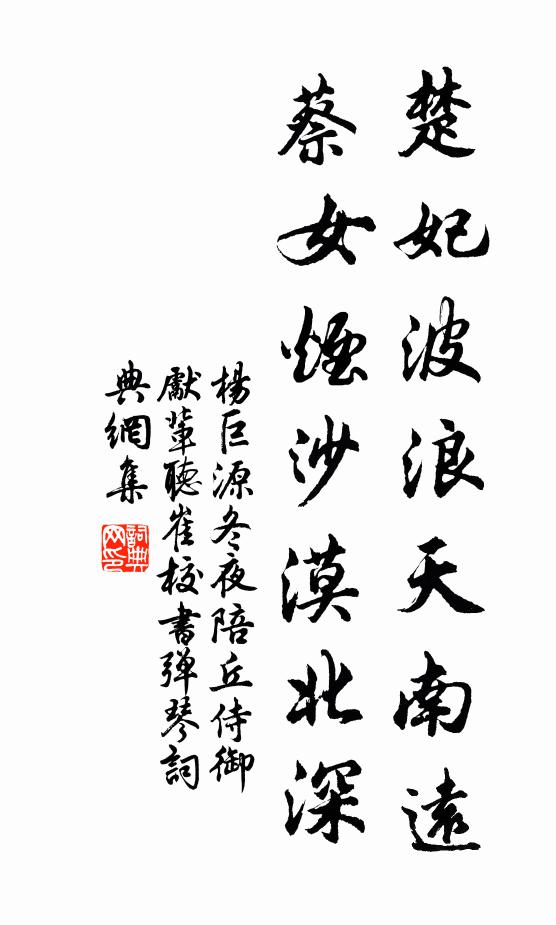 楚妃波浪天南遠
蔡女煙沙漠北深
楊巨源冬夜陪丘侍御
獻輩聽崔校書弾琴詞
典網集
詞典網印